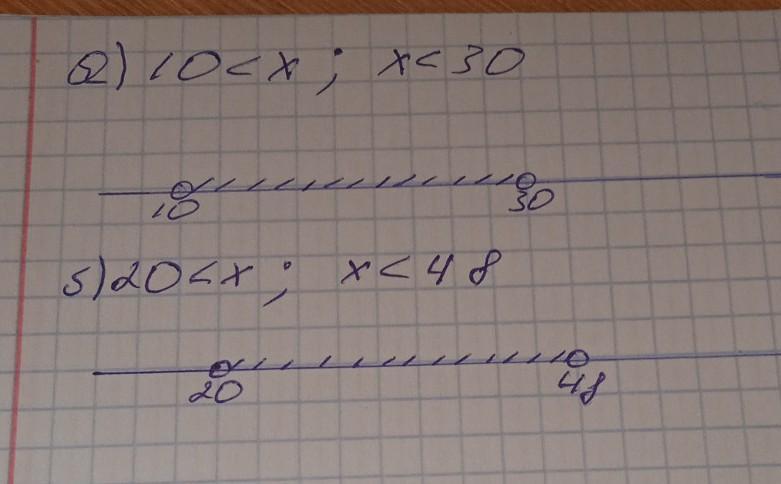 а) 10 < x ; x < 30
10 30
б) 20 < x ; x < 48
20 48